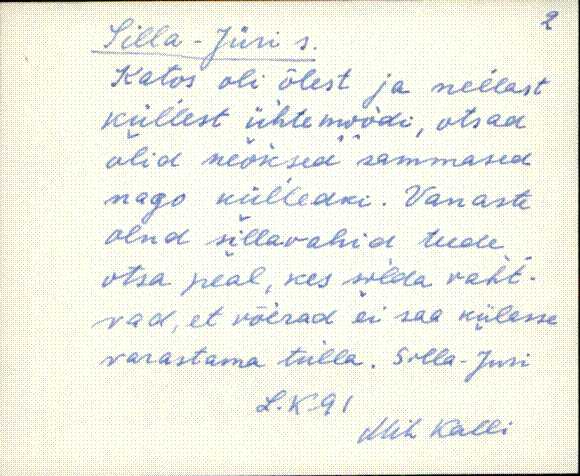 2
Silla-Jüri s.
Katos oli õlest ja nellast
küllest ühtemoodi, otsad
olid neoksed sammased
nago külledki. Vanaste
olnd sillavahid teede
otsa peal, kes silda vaht-
vad, et võerad ei saa külasse
varastama tulla. Silla-Juri
L.K. 91
Mih. Kalli